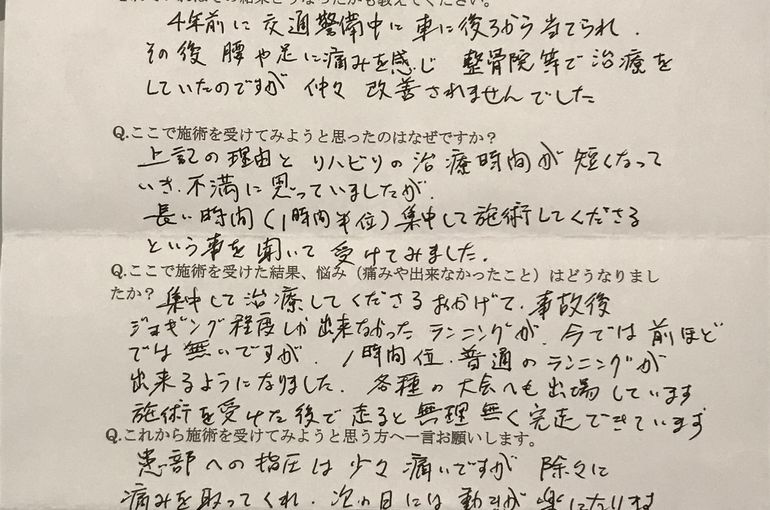 4年前に交通警備中に車に後ろから当てられ、
その後腰や足に痛みを感じ 整骨院等で治療を
していたのですが 仲々改善されませんでした
Q.ここで施術を受けてみようと思ったのはなぜですか？
上記の理由と リハビリの治療時間が短くなって
いき、不満に思っていましたが、
長い時間(1時間半位)集中して施術してくださる
という事を聞いて受けてみました。
Q.ここで施術を受けた結果、悩み（痛みや出来なかったこと）はどうなりまし
たか？ 集中して治療してくださるおかげで、事故後
ジョギング程度しか出来なかったランニングが、今では前ほど
では無いですが、1時間位、普通のランニングが
出来るようになりました、各種の大会へも出場しています
施術を受けた後で走ると無理無く完走できています
Q.これから施術を受けてみようと思う方へ一言お願いします。
患部への指圧は少々痛いですが 除々に
痛みを取ってくれ、次の日には動きが楽になります